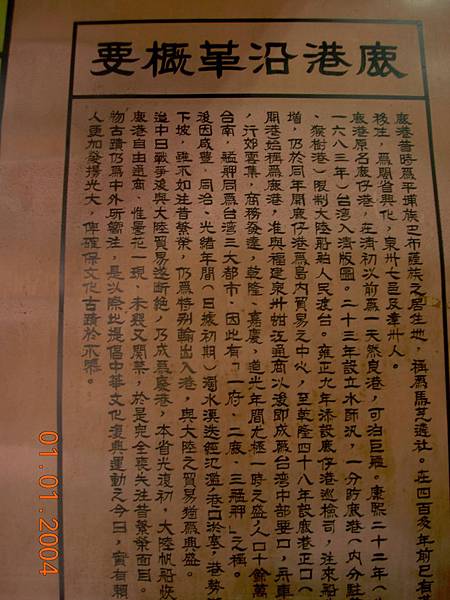 鹿港沿革概要
鹿港昔時為平埔族巴布薩族之居生地,稱為馬芝遴社。在四百多年前已有
移注,為閩省興化,泉州七邑及漳州人。
鹿港原名鹿仔港,在清初以前為一天然良港,可泊巨艦。康熙二十二年(
一六八三年)台湾入清版圖。二十三年設立水師汛,一分防鹿港(內分駐
、猴樹港)限制大陸船舶人民渡台。雍正九年添設鹿仔港巡檢司,往來船
增,仍於同年開鹿仔港為島內貿易之中心,至乾隆四十八年設鹿港正口(
開港始稱為鹿港,准與福建泉州蚶江通商以後即成為台灣中部要口,舟車
、行郊雲集,商務發達,乾隆、嘉慶,道光年間尤極一時之盛人口十餘萬
台南,艋舺同為台湾三大都市、因此有「一府、二鹿、三艋舺」之稱。
後因咸豐、同治、光緒年間(日據初期)濁水溪迭經氾濫港口淤塞,港勢
下坡,雖不如注昔繁榮,仍為特別輸出入港,與大陸之貿易猶為興盛。
迨中日戰爭後與大陸貿易遂斷絕,乃成為廢港,本省光復初,大陸帆船恢
鹿港自由通商、惟曇花一現、未幾又關禁,於是完全喪失注昔繁榮面目。
物古蹟仍為中外所矚注,是以際此提倡中華文化復興運動之今日,實有賴
人更加發揚光大,俾確保文化古蹟於不墜。
01.01.2004